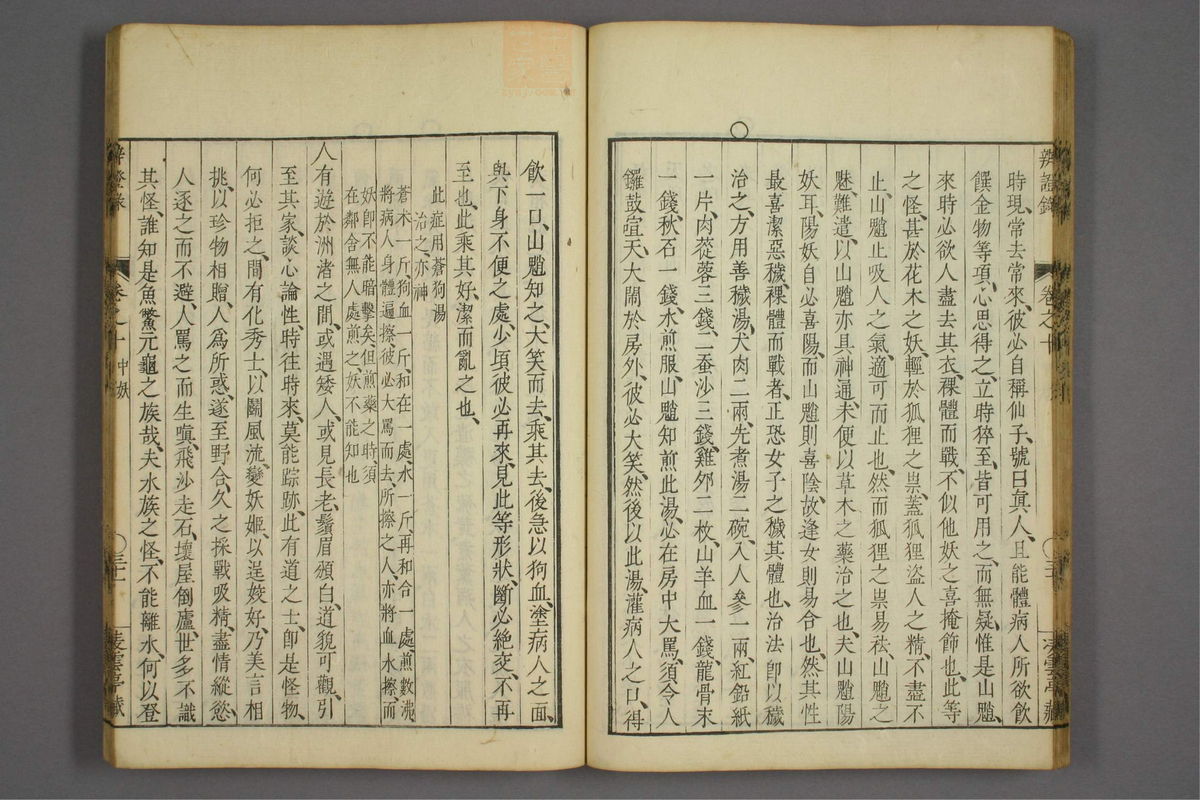 辨證錄 卷之十
時現、常去常來、彼必自稱仙子、號曰眞人、且能體病人所欲飲
饌金物等項、心思得之、立時猝至、皆可用之、而無疑、惟是山魈、
來時必欲人盡去其衣、裸體而戰、不似他妖之喜掩飾也、此等
之怪、甚於花木之妖、輕於狐狸之祟、蓋狐狸盜人之精、不盡不
止、山魈止吸人之氣、適可而止也、然而狐狸之祟易祛、山魈之
魅、難遣、以山魈亦具神通、未便以草木之藥治之也、夫山魈陽
妖耳、陽妖自必喜陽、而山魈則喜陰、故逢女則易合也、然其性
最喜潔惡穢、裸體而戰者、正恐女子之穢其體也、治法卽以穢
治之、方用善穢湯、犬肉二兩、先煮湯二碗、入人參一兩、紅鉛紙
一片、肉蓯蓉三錢、二蚕沙三錢、雞夘二枚、山羊血一錢、龍骨末
一錢、秋石一錢、水煎服、山魈知煎此湯、必在房中大罵、須令人
鑼鼓喧天、大鬧於房外、彼必大笑、然後以此湯、灌病人之口、得
飲一口、山魈知之、大笑而去、乘其去後、急以狗血、塗病人之面、
與下身不便之處、少頃彼必再來、見此等形狀、斷必絕交、不再
至也、此乘其好潔而亂之也、
此症用蒼狗湯
治之、亦神
蒼朮一斤、狗血一斤、和在一處、水一斤、再和合一處、煎數沸、
將病人身體遍擦、彼必大罵而去、所擦之人、亦將血水擦、而
妖卽不能暗擊矣、但煎藥之時、須
在鄰舍無人處煎之、妖不能知也
人有遊於洲渚之間、或遇矮人、或見長老、鬚眉頒白、道貌可觀、引
至其家、談心論性、時往時來、莫能踪跡、此有道之士、卽是怪物、
何必拒之、間有化秀士、以鬪風流、變妖姬、以逞姣好、乃美言相
挑、以珍物相贈、人爲所惑、遂至野合、久之採戰吸精、盡情縱慾、
人逐之而不避、人罵之而生嗔、飛沙走石、壞屋倒廬、世多不識
其怪、誰知是魚鱉元龜之族哉、夫水族之怪、不能離水、何以登
辨證錄 卷之十 中妖